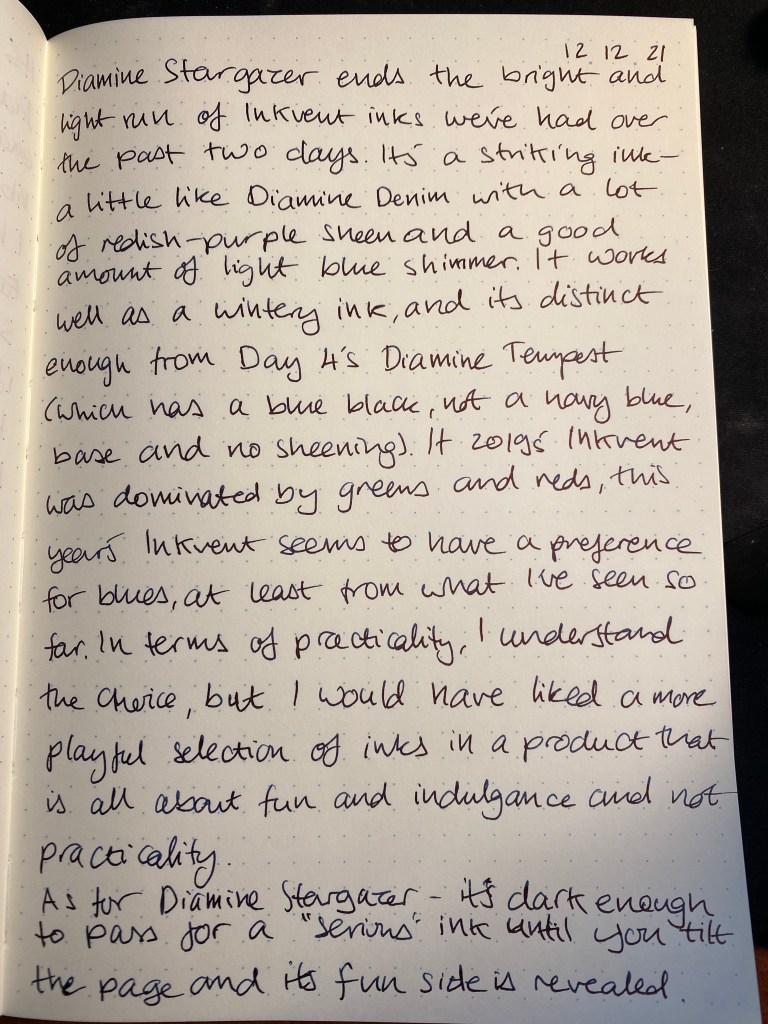 12 12 21
Diamine Stargazer ends the bright and
light run of Inkvent inks we've had over
the past two days. It's a striking ink-
a little like Diamine Denim with a lot
of redish-purple sheen and a good
amount of light blue shimmer. It works
well as a wintery ink, and its distinct
enough from Day 4's Diamine Tempest
(which has a blue black, not a navy blue,
base and no sheening). If 2019s' Inkvent
was dominated by greens and reds, this
years' Inkvent seems to have a preference
for blues, at least from what I've seen so
far. In terms of practicality, I understand
the choice, but I would have liked a more
playful selection of inks in a product that
is all about fun and indulgance and not
practicality.
As for Diamine Stargazer - it's dark enough
to pass for a "serious" ink until you tilt
the page and its fun side is revealed.